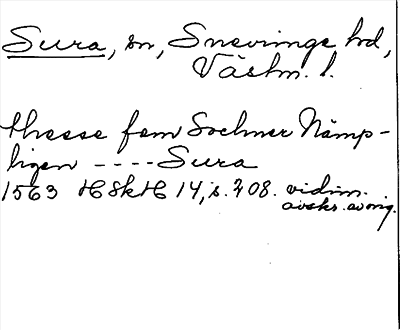 Sura, sn, Snevringe hd,
Västm. l.
thesse fem Sochner Nämp-
ligen ---- Sura
1563 HSkH 14, s. 708. vidim.
avskr. av orig.